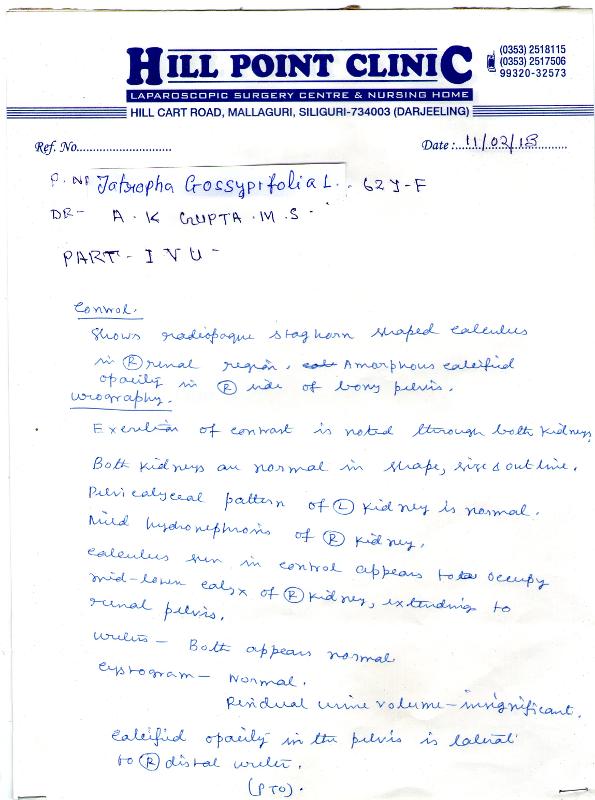 HILL POINT CLINIC
(0353) 2518115
(0353) 2517506
99320-32573
LAPAROSCOPIC SURGERY CENTRE & NURSING HOME
HILL CART ROAD, MALLAGURI, SILIGURI-734003 (DARJEELING)
Ref. No............................
Date :..11/02/13..........
P. N Jatropha Gossypifolia L. 62 Y-F
DR- A. K GUPTA. M. S.
PART- I V U -
Control.
Shows radiopaque staghorn shaped calculus
in (R) renal region. Amorphous calcified
opacity in (R) side of bony pelvis.
Urography.
Excretion of contrast is noted through both kidneys
Both kidneys are normal in shape, size & outline.
Pelvicalyceal pattern of (L) kidney is normal.
Mild hydronephrosis of (R) kidney.
Calculus seen in control appears to occupy
mid-lower calyx of (R) kidney, extending to
renal pelvis.
Ureters - Both appears normal
Cystogram - Normal.
Residual urine volume - insignificant.
Calcified opacity in the pelvis is lateral
to (R) distal ureter.
(PTO).